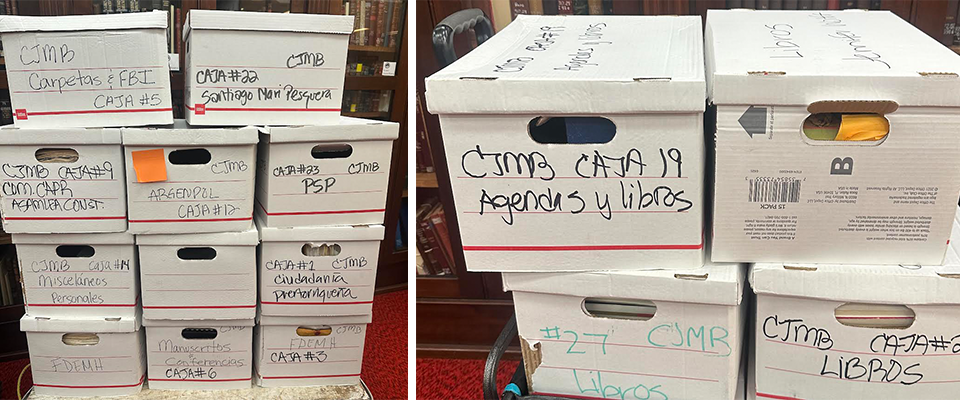 CJMB
Carpetas & FBI
CAJA #5
CJMB
CAJA #22
Santiago Mari Pesquera
CJMB CAJA #9
COM. CAPR
ASAMBLEA CONST.
CJMB
ARGENPOL
CAJA #12
CAJA #23 CJMB
PSP
CJMB Caja #14
Misceláneos
Personales
CAJA #1 CJMB
Ciudadanía
puertorriqueña
FDEMH
CJMB
Manuscritos
Conferencias
CAJA #6
CJMB
FDEMH
CAJA #3
Agendas y libros
Libros
CJMB CAJA 19
Agendas y libros
B
15 PACK
#27 CJMB
Libros
CJMB CAJA
LIBROS